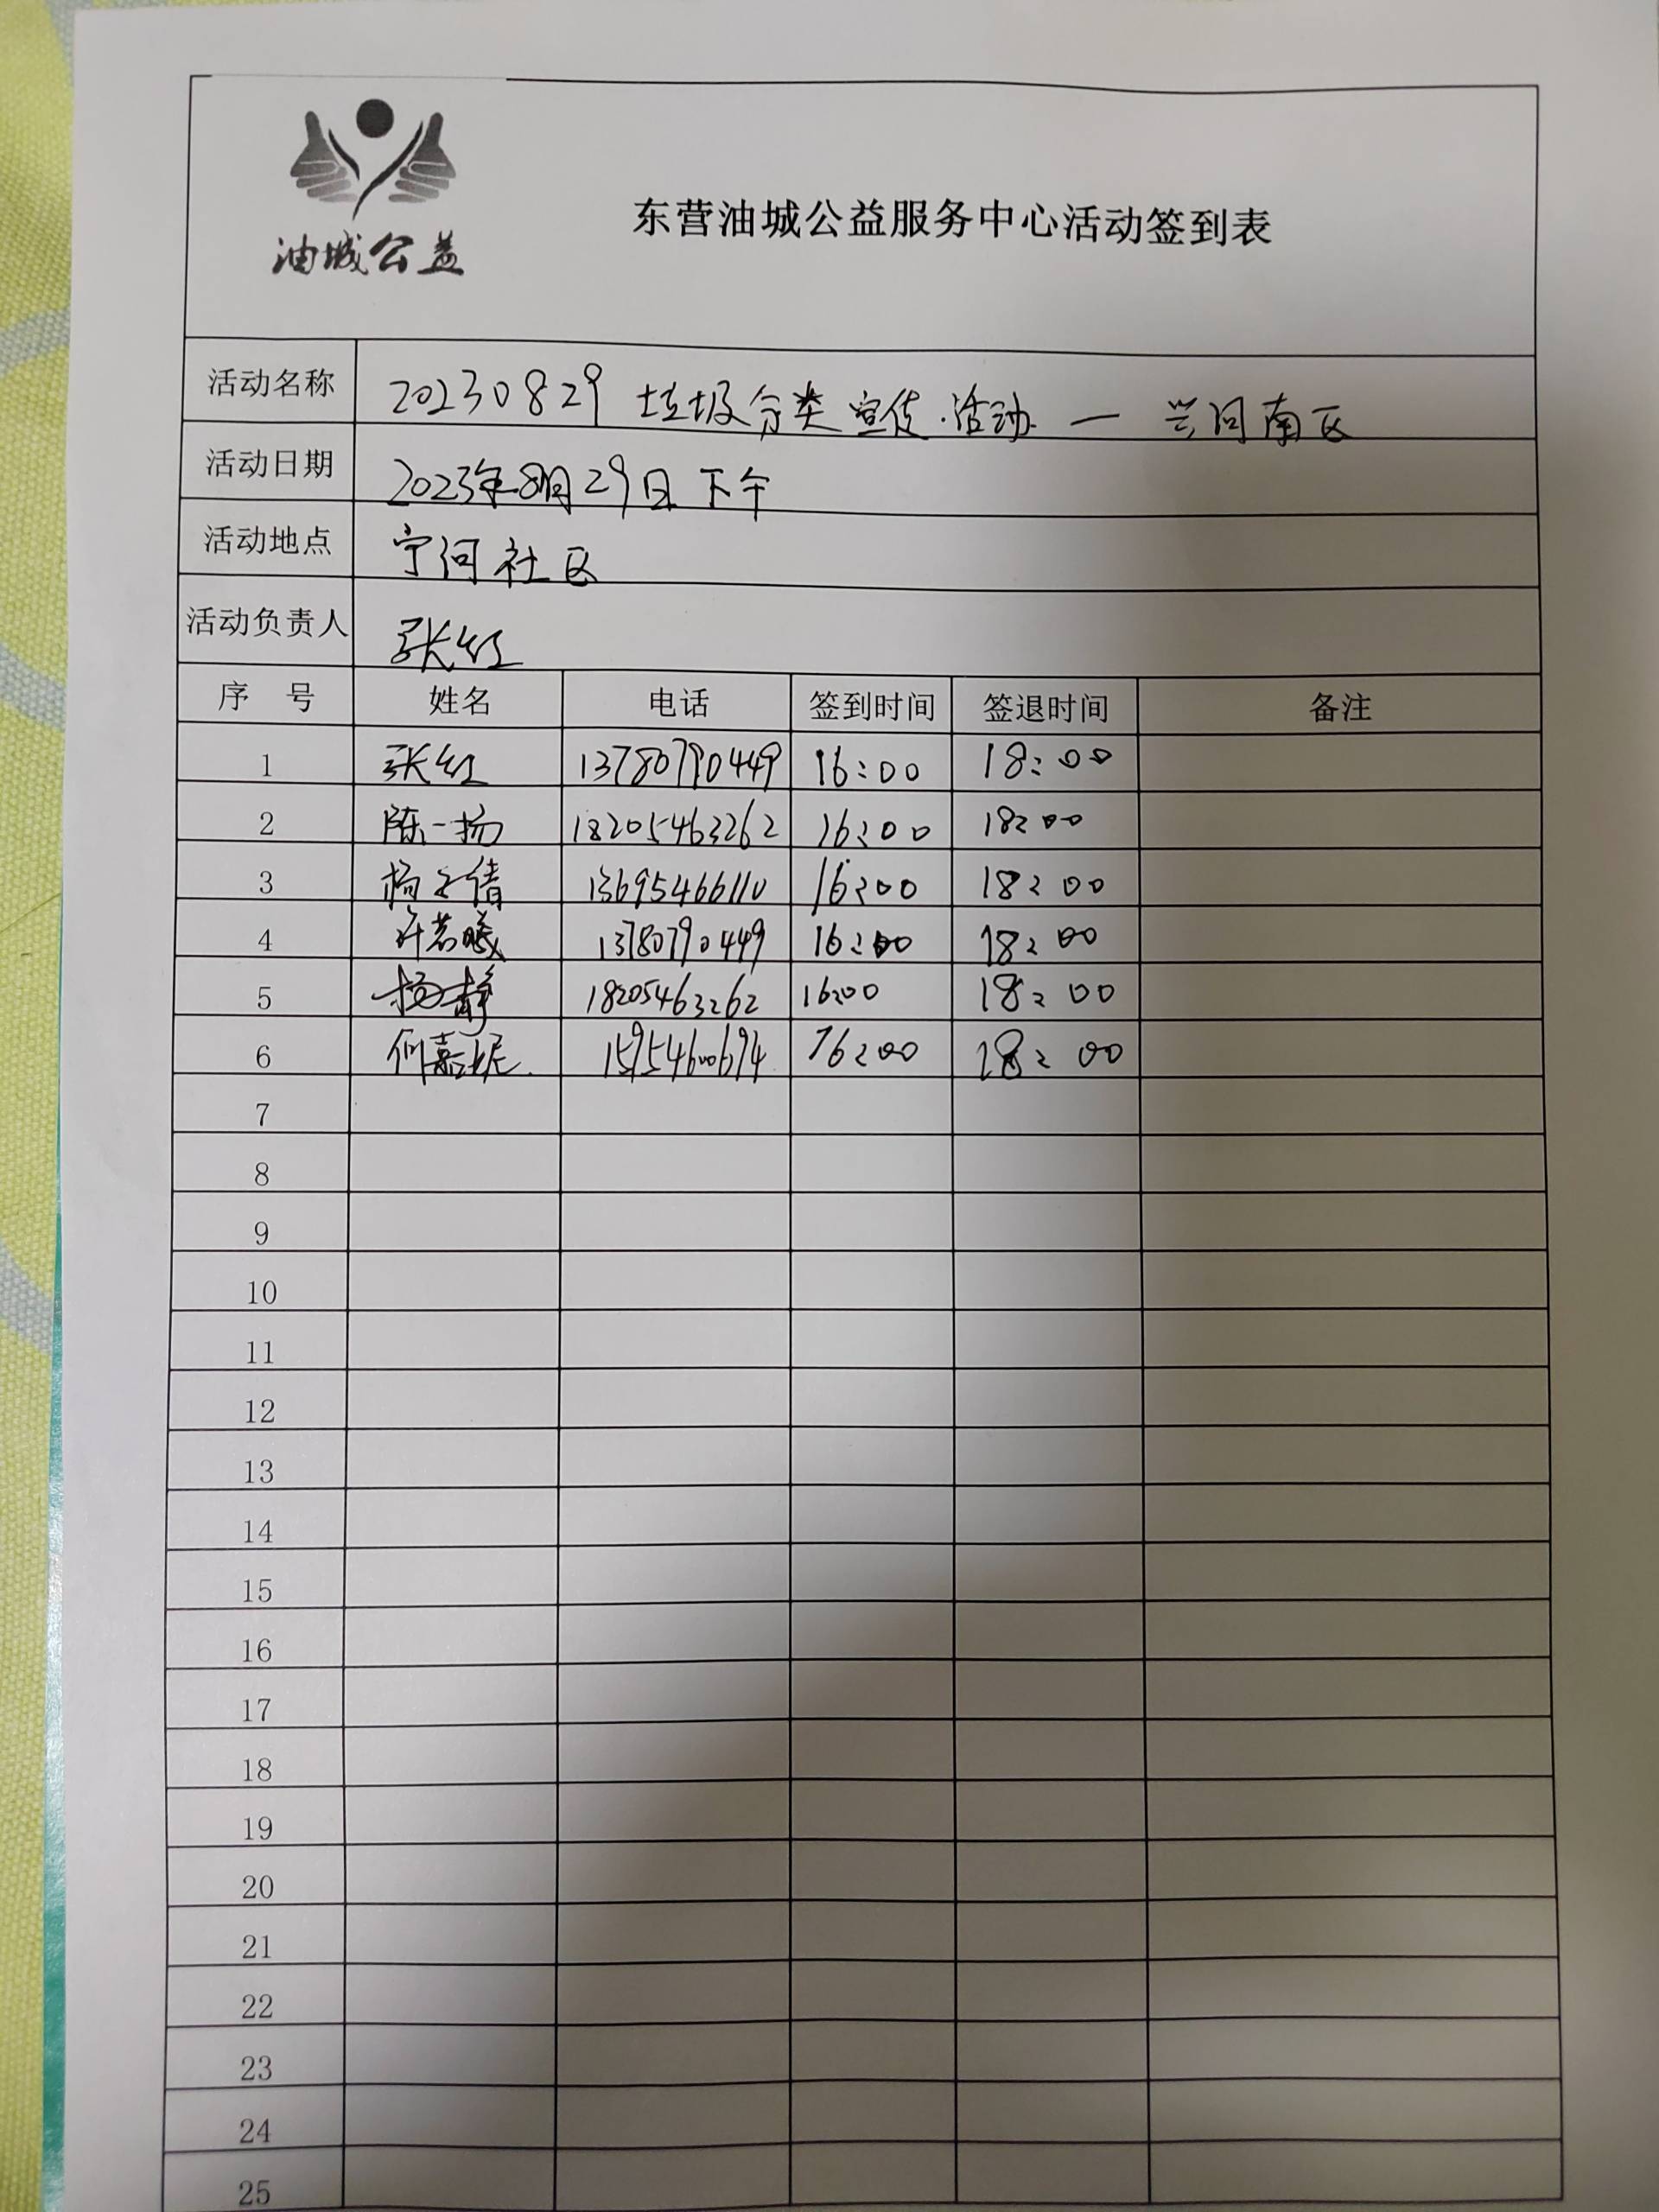 油城公益
东营油城公益服务中心活动签到表
活动名称 20230829 垃圾分类宣传活动 — 兴河南区
活动日期 2023年8月29日下午
活动地点 宁河社区
活动负责人 张红
序 号 姓名 电话 签到时间 签退时间 备注
1 张红 13780790449 16:00 18:00
2 陈一扬 18205463262 16:00 18:00
3 杨 倩 13695466110 16:00 18:00
4 许若曦 13780790449 16:00 18:00
5 杨静 18205463262 16:00 18:00
6 何嘉妮 15954600694 16:00 18:00
7
8
9
10
11
12
13
14
15
16
17
18
19
20
21
22
23
24
25